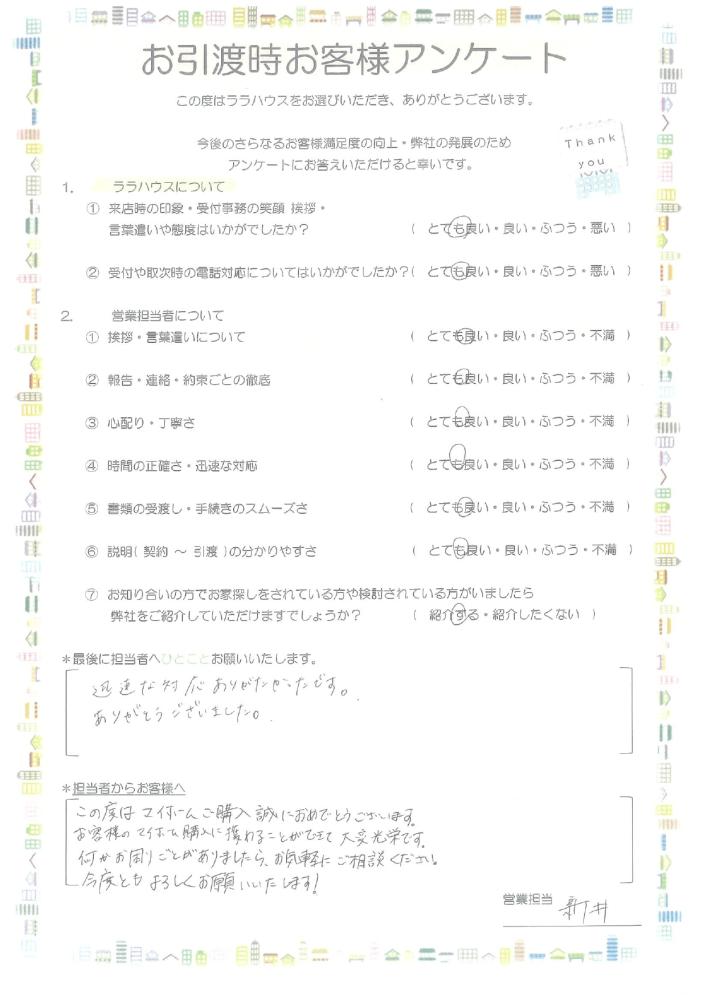 お引渡時お客様アンケート
この度はララハウスをお選びいただき、ありがとうございます。
今後のさらなるお客様満足度の向上・弊社の発展のため
アンケートにお答えいただけると幸いです。
Thank
you
1. ララハウスについて
① 来店時の印象・受付事務の笑顔 挨拶・
言葉遣いや態度はいかがでしたか? ( とても良い・良い・ふつう・悪い )
② 受付や取次時の電話対応についてはいかがでしたか?( とても良い・良い・ふつう・悪い )
2. 営業担当者について
① 挨拶・言葉遣いについて ( とても良い・良い・ふつう・不満 )
② 報告・連絡・約束ごとの徹底 ( とても良い・良い・ふつう・不満 )
③ 心配り・丁寧さ ( とても良い・良い・ふつう・不満 )
④ 時間の正確さ・迅速な対応 ( とても良い・良い・ふつう・不満 )
⑤ 書類の受渡し・手続きのスムーズさ ( とても良い・良い・ふつう・不満 )
⑥ 説明( 契約 ～ 引渡 )の分かりやすさ ( とても良い・良い・ふつう・不満 )
⑦ お知り合いの方でお家探しをされている方や検討されている方がいましたら
弊社をご紹介していただけますでしょうか? ( 紹介する・紹介したくない )
*最後に担当者へひとことお願いいたします。
迅速な対応ありがたかったです。
ありがとうございました。
*担当者からお客様へ
この度はマイホームご購入誠におめでとうございます。
お客様のマイホーム購入に携わることができて大変光栄です。
何かお困りごとがありましたら、お気軽にご相談ください。
今後ともよろしくお願いいたします!
営業担当 新井